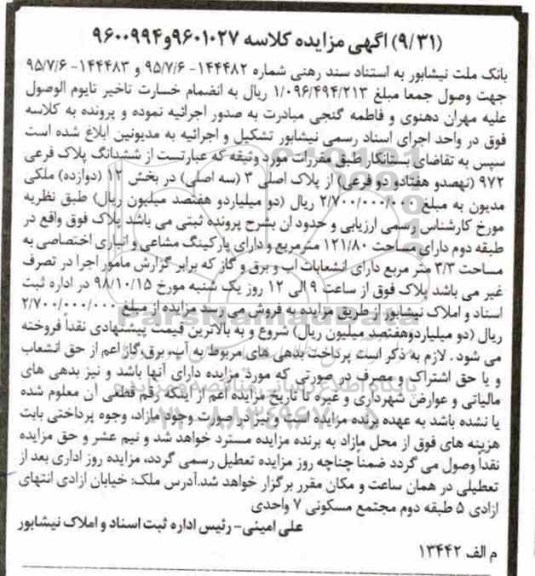 (۹/۳۱) اگهی مزایده کلاسه ۹۶۰۱۰۲۷و۹۶۰۰۹۹۴
بانک ملت نیشابور به استناد سند رهنی شماره ۱۴۴۴۸۲- ۹۵/۷/۶ و ۱۴۴۴۸۳- ۹۵/۷/۶
جهت وصول جمعا مبلغ ۱/۰۹۶/۴۹۴/۲۱۳ ریال به انضمام خسارت تاخیر تایوم الوصول
علیه مهران دهنوی و فاطمه گنجی مبادرت به صدور اجرائیه نموده و پرونده به کلاسه
فوق در واحد اجرای اسناد رسمی نیشابور تشکیل و اجرائیه به مدیونین ابلاغ شده است
سپس به تقاضای بستانکار طبق مقررات مورد وثیقه که عبارتست از ششدانگ پلاک فرعی
۹۷۲ (نهصدو هفتادو دو فرعی) از پلاک اصلی ۳ (سه اصلی) در بخش ۱۲ (دوازده) ملکی
مدیون به مبلغ ۲/۷۰۰/۰۰۰/۰۰۰ ریال (دو میلیاردو هفتصد میلیون ریال) طبق نظریه
مورخ کارشناس رسمی ارزیابی و حدود ان بشرح پرونده ثبتی می باشد پلاک فوق واقع در
طبقه دوم دارای مساحت ۱۲۱/۸۰ مترمربع و دارای پارکینگ مشاعی و انباری اختصاصی به
مساحت ۳/۳ متر مربع دارای انشعابات اب و برق و گاز که برابر گزارش مامور اجرا در تصرف
غیر می باشد پلاک فوق از ساعت ۹ الی ۱۲ روز یک شنبه مورخ ۹۸/۱۰/۱۵ در اداره ثبت
اسناد و املاک نیشابور از طریق مزایده به فروش می رسد. مزایده از مبلغ ۲/۷۰۰/۰۰۰/۰۰۰
ریال (دو میلیاردوهفتصد میلیون ریال) شروع و به بالاترین قیمت پیشنهادی نقداً فروخته
می شود . لازم به ذکر است پرداخت بدهی های مربوط به آب، برق،گاز اعم از حق انشعاب
و یا حق اشتراک و مصرف در صورتی که مورد مزایده دارای آنها باشد و نیز بدهی های
مالیاتی و عوارض شهرداری و غیره تا تاریخ مزایده اعم از اینکه رقم قطعی آن معلوم شده
یا نشده باشد به عهده برنده مزایده است و نیز در صورت وجود مازاد، وجوه پرداختی بابت
هزینه های فوق از محل مازاد به برنده مزایده مسترد خواهد شد و نیم عشر و حق مزایده
نقداً وصول می گردد ضمناً چناچه روز مزایده تعطیل رسمی گردد، مزایده روز اداری بعد از
تعطیلی در همان ساعت و مکان مقرر برگزار خواهد شد.آدرس ملک: خیابان ازادی انتهای
ازادی ۵ طبقه دوم مجتمع مسکونی ۷ واحدی
علی امینی- رئیس اداره ثبت اسناد و املاک نیشابور
م الف ۱۳۴۴۲